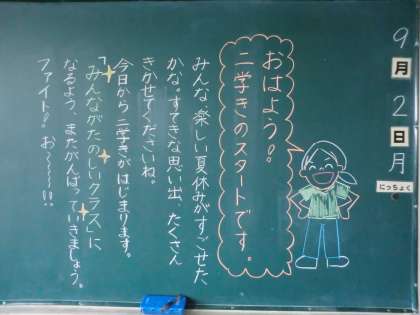 9月2日月
にっちょく
おはよう！
二学きのスタートです。
みんな、楽しい夏休みがすごせた
かな。すてきな思い出、たくさん
きかせてくださいね。
今日から二学きがはじまります。
「みんながたのしいクラス」に
なるよう、またがんばっていきましょう。
ファイト！お〜〜〜!!